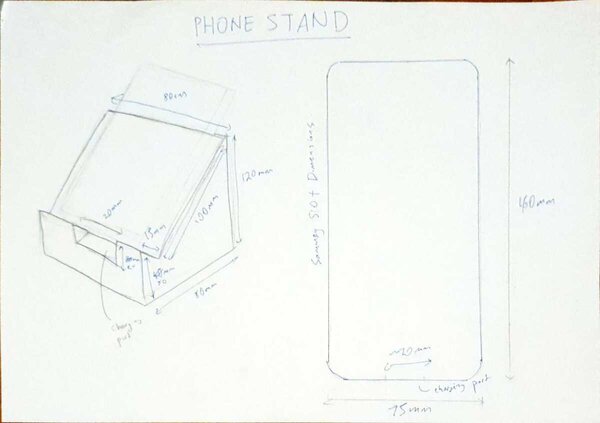 PHONE STAND
80mm
120mm
100mm
20mm
15mm
80mm
charging
port
Dimensions
160mm
20mm
charging port
75mm